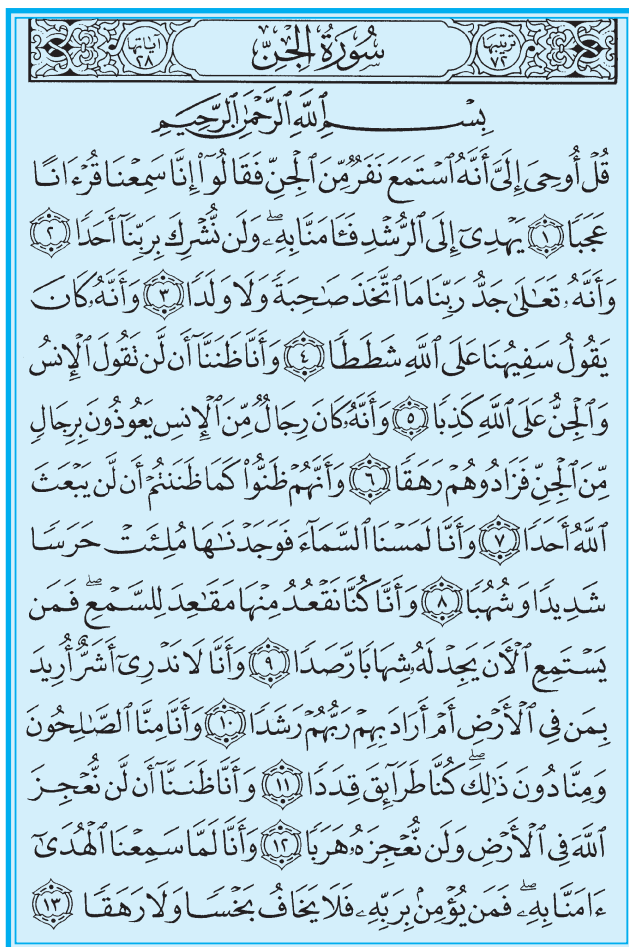 ترتيبها ٧٢ سُورَةُ الْجِنِّ آياتها ٢٨
بِسْمِ ٱللَّهِ ٱلرَّحْمَٰنِ ٱلرَّحِيمِ
قُلْ أُوحِىَ إِلَىَّ أَنَّهُ ٱسْتَمَعَ نَفَرٌ مِّنَ ٱلْجِنِّ فَقَالُوٓا۟ إِنَّا سَمِعْنَا قُرْءَانًا
عَجَبًا ١ يَهْدِىٓ إِلَى ٱلرُّشْدِ فَـَٔامَنَّا بِهِۦ ۖ وَلَن نُّشْرِكَ بِرَبِّنَآ أَحَدًا ٢
وَأَنَّهُۥ تَعَٰلَىٰ جَدُّ رَبِّنَا مَا ٱتَّخَذَ صَٰحِبَةً وَلَا وَلَدًا ٣ وَأَنَّهُۥ كَانَ
يَقُولُ سَفِيهُنَا عَلَى ٱللَّهِ شَطَطًا ٤ وَأَنَّا ظَنَنَّآ أَن لَّن تَقُولَ ٱلْإِنسُ
وَٱلْجِنُّ عَلَى ٱللَّهِ كَذِبًا ٥ وَأَنَّهُۥ كَانَ رِجَالٌ مِّنَ ٱلْإِنسِ يَعُوذُونَ بِرِجَالٍ
مِّنَ ٱلْجِنِّ فَزَادُوهُمْ رَهَقًا ٦ وَأَنَّهُمْ ظَنُّوا۟ كَمَا ظَنَنتُمْ أَن لَّن يَبْعَثَ
ٱللَّهُ أَحَدًا ٧ وَأَنَّا لَمَسْنَا ٱلسَّمَآءَ فَوَجَدْنَٰهَا مُلِئَتْ حَرَسًا
شَدِيدًا وَشُهُبًا ٨ وَأَنَّا كُنَّا نَقْعُدُ مِنْهَا مَقَٰعِدَ لِلسَّمْعِ ۖ فَمَن
يَسْتَمِعِ ٱلْءَانَ يَجِدْ لَهُۥ شِهَابًا رَّصَدًا ٩ وَأَنَّا لَا نَدْرِىٓ أَشَرٌّ أُرِيدَ
بِمَن فِى ٱلْأَرْضِ أَمْ أَرَادَ بِهِمْ رَبُّهُمْ رَشَدًا ١٠ وَأَنَّا مِنَّا ٱلصَّٰلِحُونَ
وَمِنَّا دُونَ ذَٰلِكَ ۖ كُنَّا طَرَآئِقَ قِدَدًا ١١ وَأَنَّا ظَنَنَّآ أَن لَّن نُّعْجِزَ
ٱللَّهَ فِى ٱلْأَرْضِ وَلَن نُّعْجِزَهُۥ هَرَبًا ١٢ وَأَنَّا لَمَّا سَمِعْنَا ٱلْهُدَىٰٓ
ءَامَنَّا بِهِۦ ۖ فَمَن يُؤْمِنۢ بِرَبِّهِۦ فَلَا يَخَافُ بَخْسًا وَلَا رَهَقًا ١٣